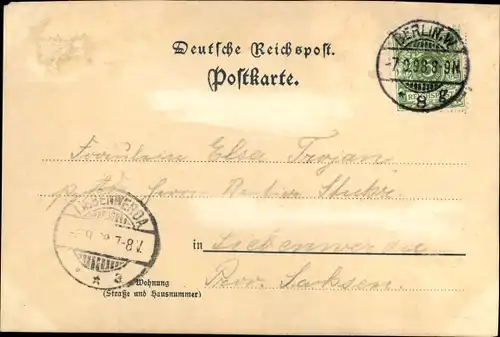 BERLIN.W.
-7.9.98.8-9N
* 8 g
Deutsche Reichspost.
Postkarte.
Fräulein Elsa Trojan
Herrn Rentier
LIEBENWERDA
7-8V.
* * 3
in Liebenwerda
Prov. Sachsen.
Wohnung
(Straße und Hausnummer)